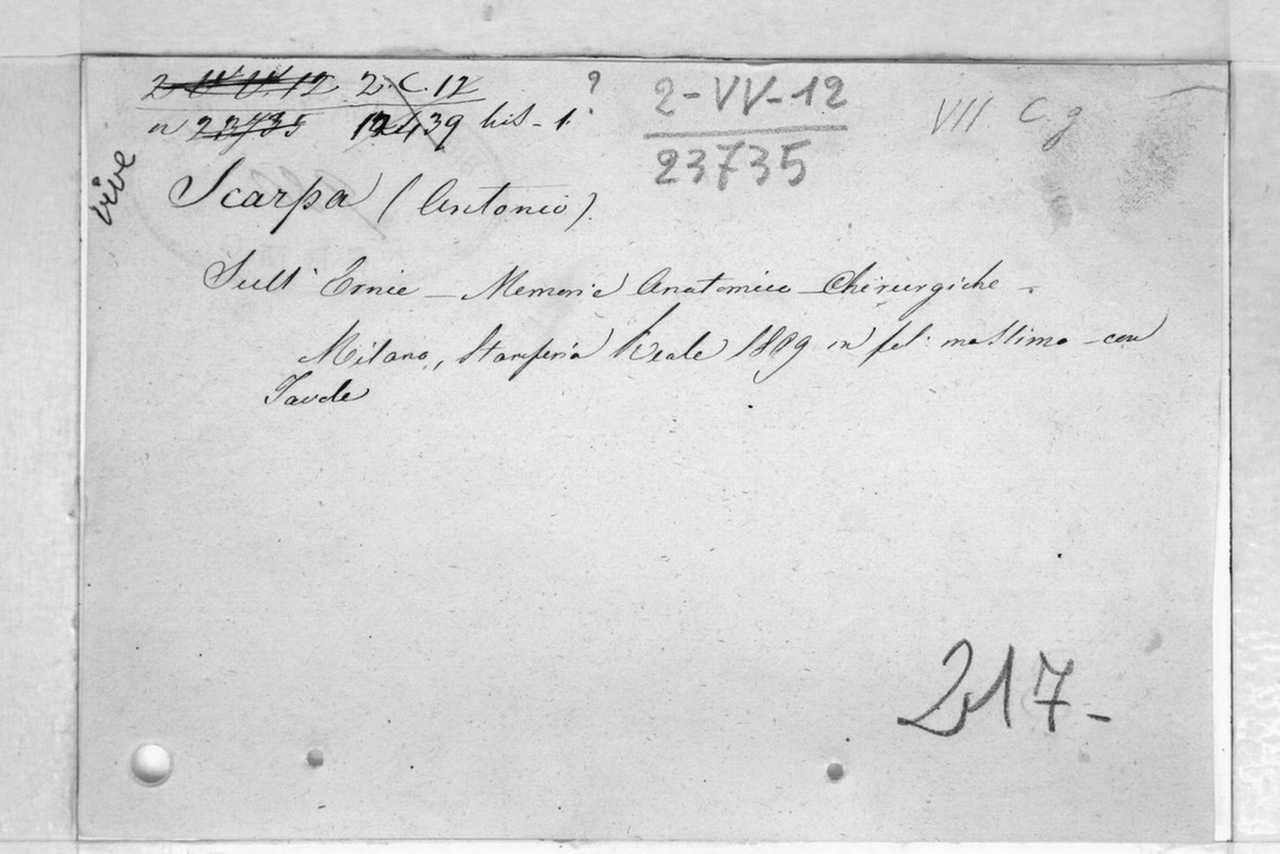 2 VV. 12 2. C. 12 ? 2-VV-12 VII C. g
n 23735 12439 bis - 1. 23735
vive
Scarpa (Antonio).
Sull' Ernie - Memorie Anatomico - Chirurgiche -
Milano, Stamperia Reale 1809 in fol: massimo - con
Tavole
217-